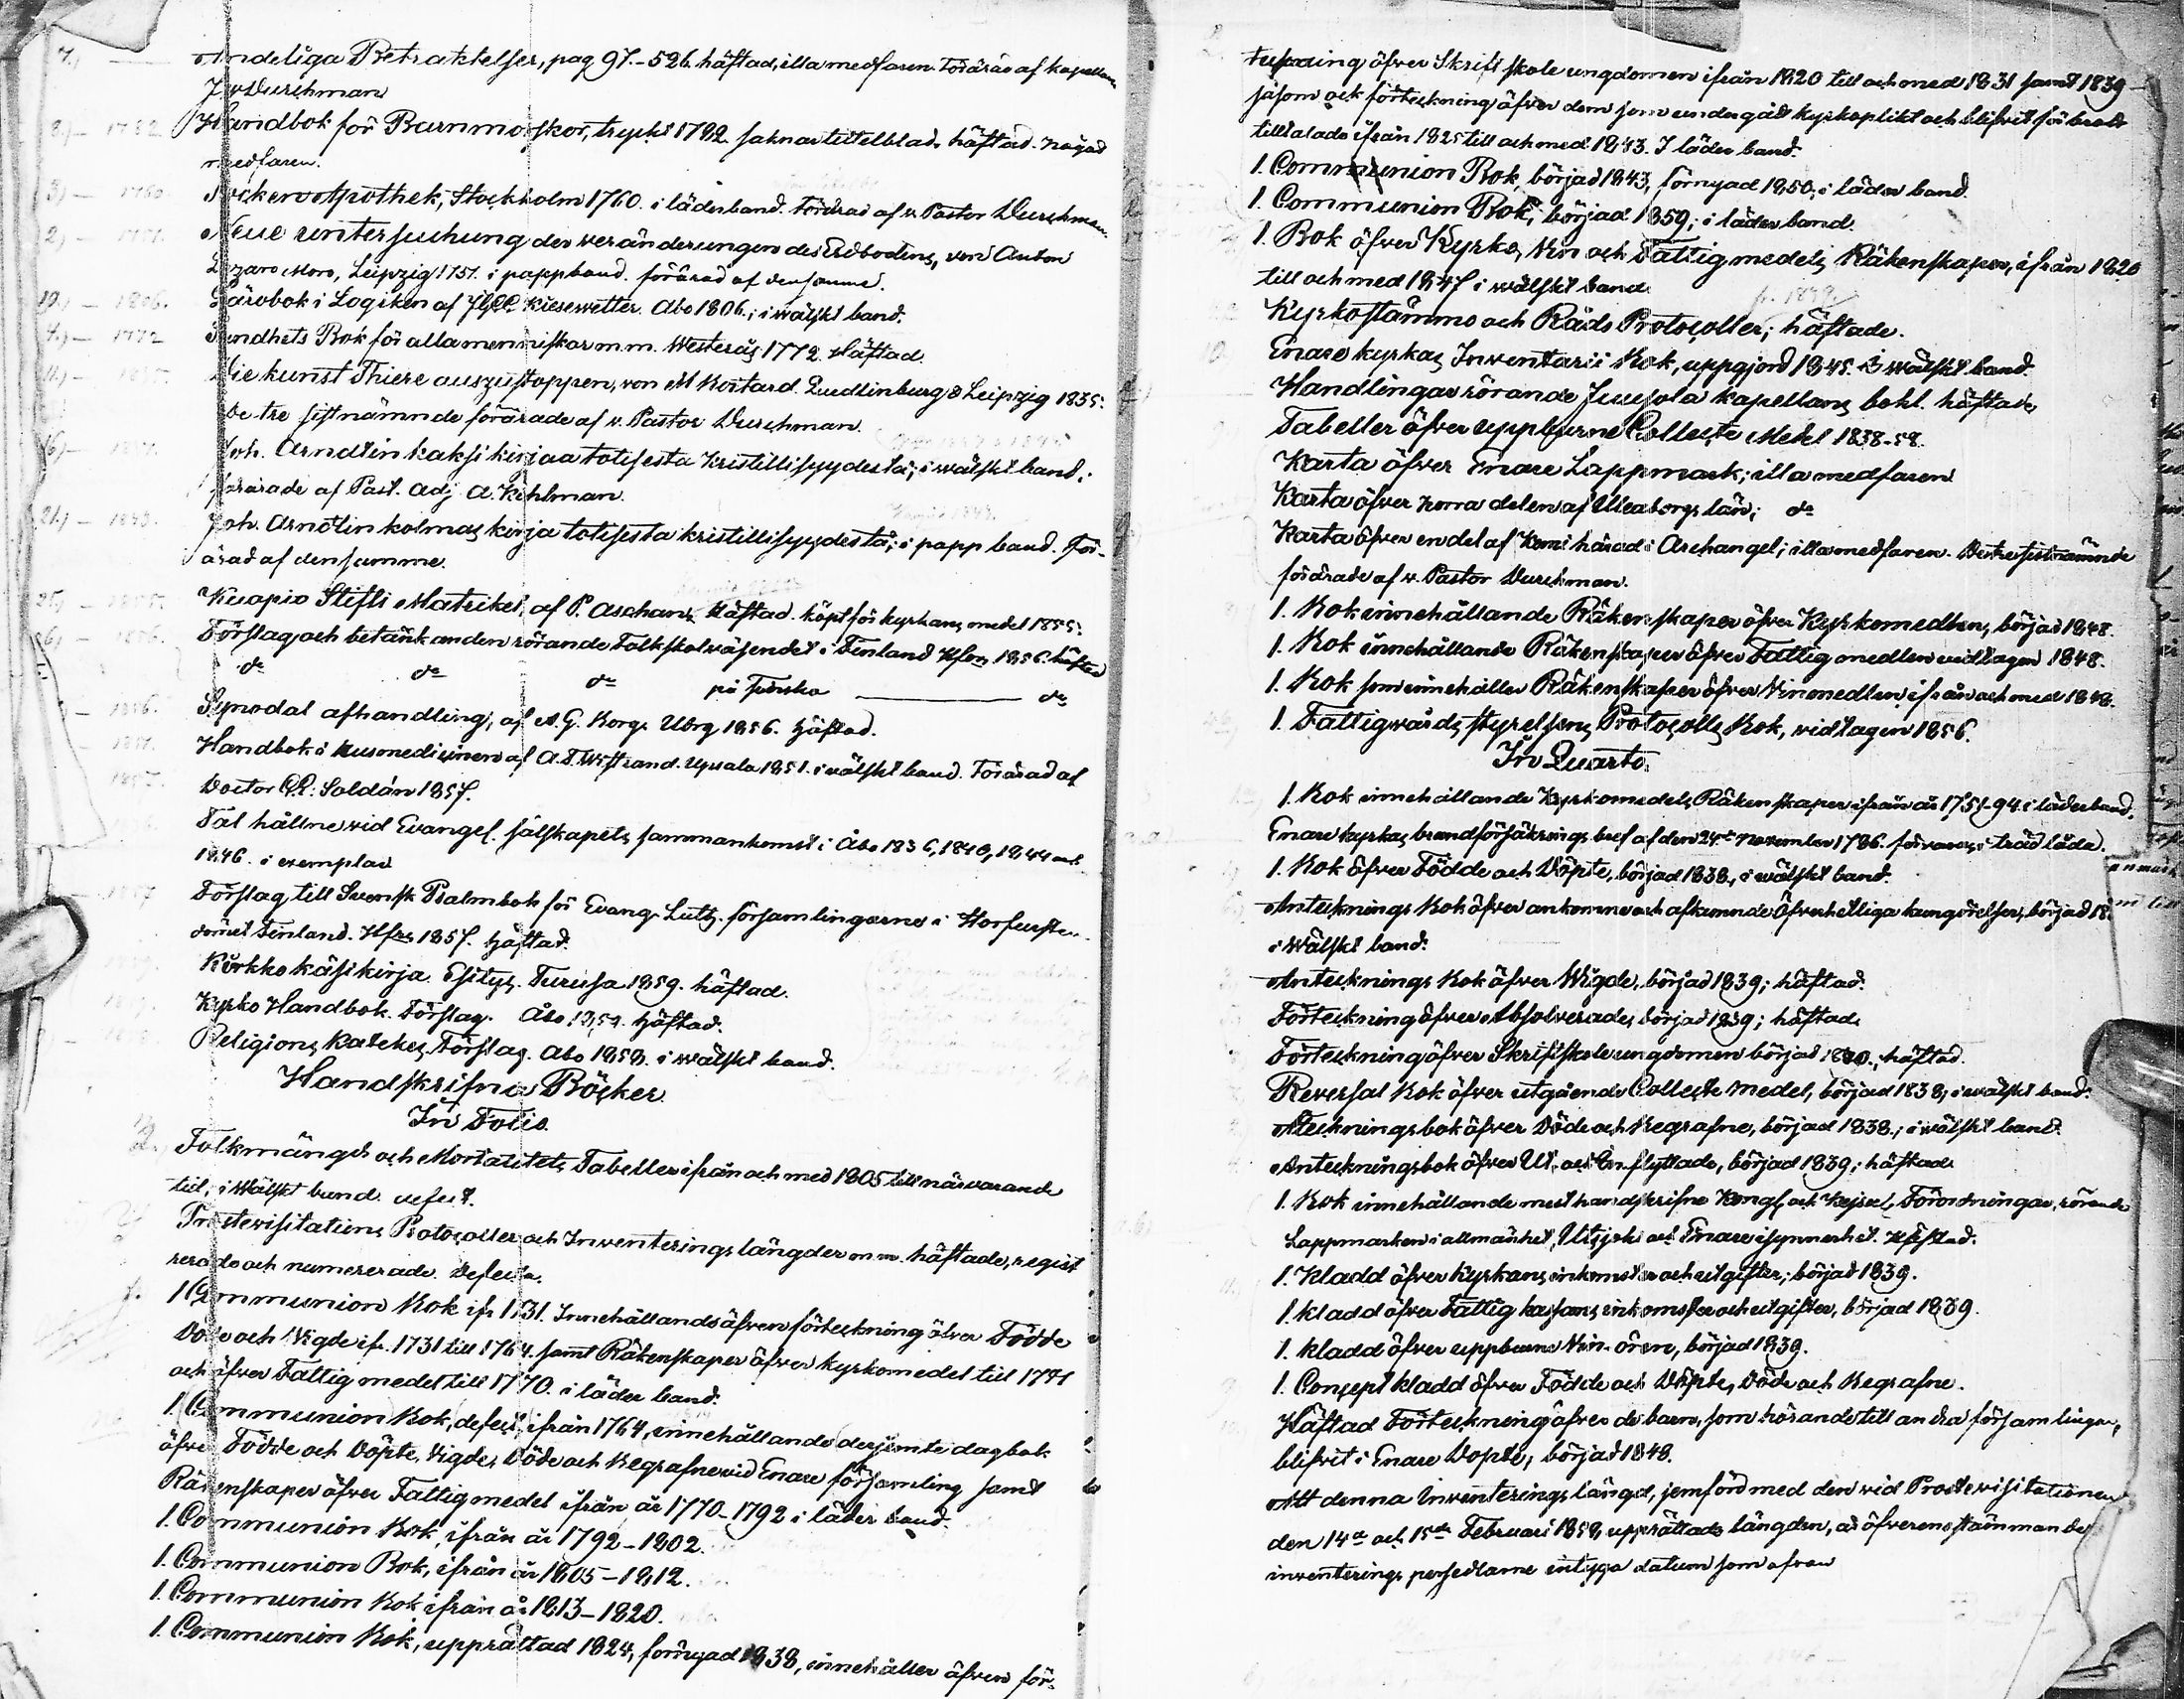 Andeliga Betraktelser, pag 97.-526. häftad, illa medfaren. Förärad af kapellan
J. Durchman
Handbok för Barnmorskor, tryckt 1782. saknar tittelblad, häftad. något
medfaren.
Apothek, Stockholm 1760. i läderband. Förärad af v. Pastor Durchman.
Neue untersuchung der veränderungen des Erdbodens, von Anton
Lazaro Moro, Leipzig 1751. i pappband. förärad af densamme.
Lärobok i Logiken af Kiesewetter. Åbo 1806. i wälskt band.
Sundhets Bok för alla menniskor m.m. Westerås 1772. Häftad
Die kunst Thiere auszustoppen, von M Kortard. Quedlinburg & Leipzig 1835.
De tre sistnämnde förärade af v. Pastor Durchman.
Joh. Arndtin kaksi kirjaa totisesta kristillisyydestä; i wälskt band.
förärade af Past. Adj. A. Kihlman.
Joh. Arndtin kolmas kirja totisesta kristillisyydestä; i papp band. För-
ärad af densamme.
Kuopio Stifts Matrikel, af P. Aschan. Häftad. köpt för kyrkans medel 1855.
Förslag och betänkanden rörande Folkskolväsendet i Finland Hfors 1856. häftad
do do do på Finska — do
Synodal afhandling, af A. G. Borg. Ubrg 1856. Häftad.
Handbok i Husmedicinen af A. T. Wistrand. Upsala 1851. i wälskt band. Förärad af
Doctor Soldán 1857.
Tal hållne vid Evangel. sälskapets sammankomst i Åbo 1836, 1840, 1844 och
1846. i exemplar
Förslag till Svensk Psalmbok för Evang. Luth. församlingarne i Storfursten-
dömet Finland. Hfrs 1857. Häftad.
Kirkko käsikirja. Esitys. Turusa 1859. häftad.
Kyrko Handbok. Förslag. Åbo 1859. Häftad.
Religions Kateches. Förslag. Åbo 1858. i wälskt band.
Handskrifna Böcker.
In Folio.
Folkmängds och Mortalitets Tabeller ifrån och med 1805 till närvarande
tid; i wälskt band. defect.
Prostevisitations Protocoller och Inventerings längder m.m. häftade, regist
rerade och numererade. Defecta.
1 Communion Bok ifr 1731. Innehållands äfven förteckning öfver Födde
Döde och Vigde ifr. 1731 till 1764. samt Räkenskaper öfver kyrkomedel till 1771
och öfver Fattig medel till 1770. i läder band.
1. Communion Bok, defect, ifrån 1764, innehållande derjemte dagbok
öfver Födde och Döpte, Vigde, Döde och Begrafne vid Enare församling samt
Räkenskaper öfver Fattigmedel ifrån år 1770-1792 i läder band.
1. Communion Bok, ifrån år 1792-1802.
1. Communion Bok, ifrån år 1805-1812.
1. Communion Bok ifrån år 1813-1820.
1. Communion Bok, upprättad 1824, förnyad 1838, innehåller äfven för-
teckning öfver Skriftskole ungdomen ifrån 1820 till och med 1831 samt 1839
såsom ock förteckning öfver dem som undergått kyrkoplikt och blifvit för brott
tilltalade ifrån 1825 till och med 1843. I läder band.
1. Communion Bok, börjad 1843, förnyad 1850, i läder band.
1. Communion Bok, börjad 1859; i läder band.
1. Bok öfver Kyrko, Vin och Fattig medels Räkenskaper, ifrån 1820
till och med 1847 i wälskt band.
Kyrkostämmo och Råds Protocoller; häftade.
Enare kyrkas Inventarii Bok, uppgjord 1845. i wälskt band.
Handlingar rörande Juujola kapellans bohl. häftade
Tabeller öfver uppburne Collecte Medel 1838-58.
Karta öfver Enare Lappmark; illa medfaren
Karta öfver Norra delen af Uleaborgs län; do
Karta öfver en del af Kemi härad i Archangel; illa medfaren. De tre sistnämnde
förärade af v. Pastor Durchman.
1. Bok innehållande Räkenskaper öfver Kyrkomedlen, börjad 1848.
1. Bok innehållande Räkenskaper öfver Fattig medlen vidtagen 1848.
1. Bok som innehåller Räkenskaper öfver Vinmedlen ifrån och med 1848.
1. Fattigvårds styrelsens Protocolls Bok, vidtagen 1856.
In Quarto.
1. Bok innehållande Kyrkomedels Räkenskaper ifrån år 1751-94. i läderband.
Enare kyrkas brandförsäkrings bref af den 24de November 1796. förvaras i träd låda.
1. Bok öfver Födde och Döpte, börjad 1838, i wälskt band.
Antecknings Bok öfver ankomne och afkunnade Öfverhetliga kungörelser, börjad 18
i Wälskt band.
Antecknings Bok öfver Wigde, börjad 1839; häftad.
Förteckning öfver Absolverade, börjad 1839; häftad.
Förteckning öfver Skriftskole ungdomen börjad 1840; häftad.
Reversal Bok öfver utgående Collecte medel, börjad 1838; i wälskt band.
Antecknings bok öfver Döde och Begrafne, börjad 1838.; i wälskt band.
Anteckningsbok öfver Ut- och Inflyttade, börjad 1839; häftad
1. Bok innehållande mest handskrifne Kongl. och Kejserl. Förordningar, rörande
Lappmarken i allmänhet, Utsjoki och Enare isynnerhet. Häftad.
1. Kladd öfver Kyrkans inkomster och utgifter; börjad 1839.
1. kladd öfver Fattig kassans inkomster och utgifter, börjad 1839.
1. kladd öfver uppburne Vin-ören, börjad 1839.
1. Concept kladd öfver Födde och Döpte, Döde och Begrafne.
Häftad Förteckning öfver de barn, som hörande till andra församlingar,
blifvit i Enare Döpte; börjad 1848.
Att denna Inventerings längd, jemförd med den vid Prostevisitationen
den 14de och 15de Februari 1859, upprättade längden, är öfverensstämmande
inventerings persedlarne intyga datum som ofvan